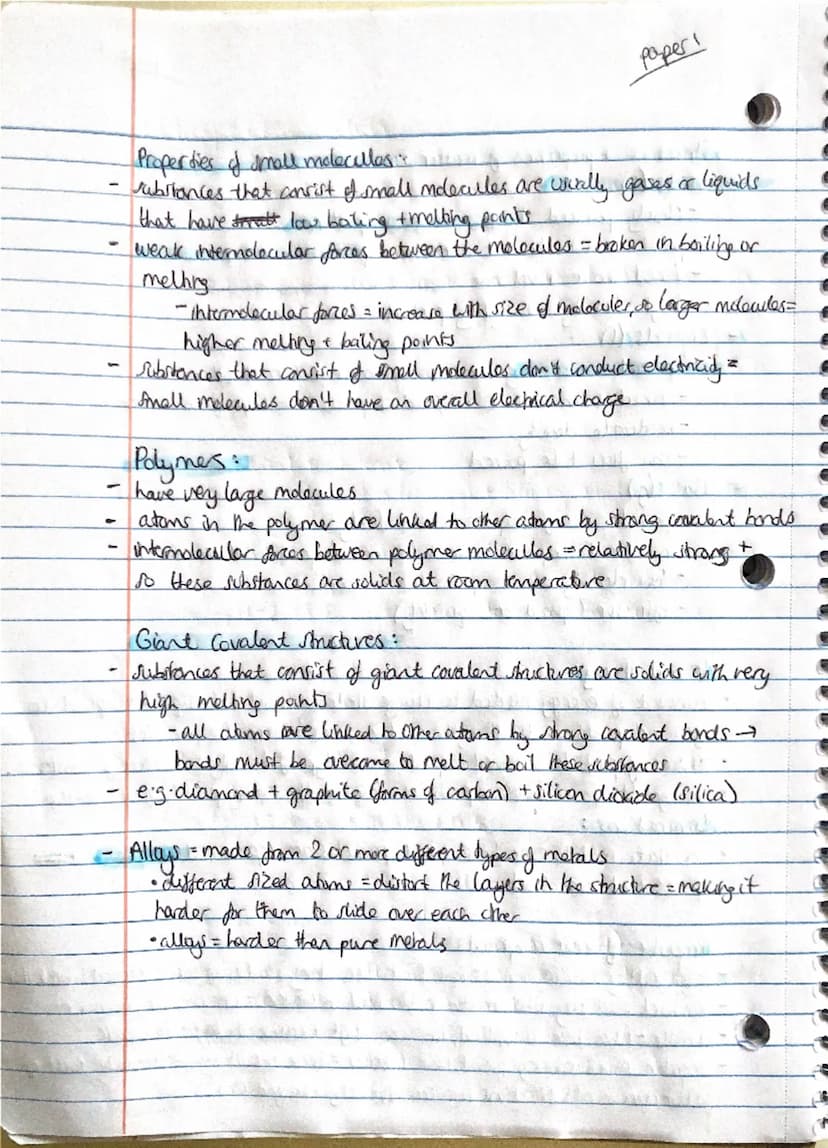 paper 1
Properties of small molecules:
- substances that consist of small molecules are usually gases or liquids
that have small low boiling + melting points
- weak intermolecular forces between the molecules = broken in boiling or
melting
- intermolecular forces = increase with size of molecules, so larger molecules =
higher melting + boiling points
- substances that consist of small molecules don't conduct electricity =
small molecules don't have an overall electrical charge
Polymers:
- have very large molecules
- atoms in the polymer are linked to other atoms by strong covalent bonds
- intermolecular forces between polymer molecules = relatively strong +
so these substances are solids at room temperature
Giant Covalent structures:
- substances that consist of giant covalent structures are solids with very
high melting points
- all atoms are linked to other atoms by strong covalent bonds →
bonds must be overcome to melt or boil these substances
- e.g. diamond + graphite (forms of carbon) + silicon dioxide (silica)
- Alloys = made from 2 or more different types of metals
• different sized atoms = distort the layers in the structure = making it
harder for them to slide over each other
• alloys = harder than pure metals